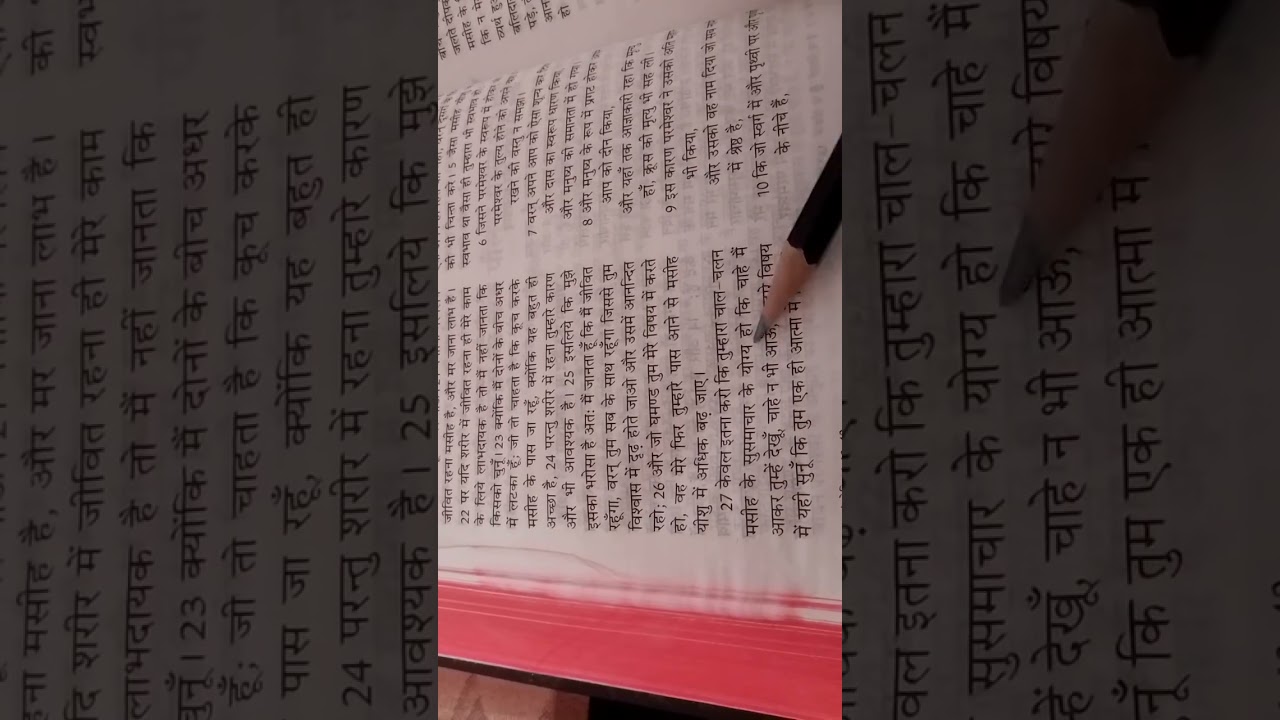 जीवित रहना मसीह है, और मर जाना लाभ है।
22 पर यदि शरीर में जीवित रहना ही मेरे काम
के लिये लाभदायक है तो मैं नहीं जानता कि
किसको चुनूँ। 23 क्योंकि मैं दोनों के बीच अधर
में लटका हूँ; जी तो चाहता है कि कूच करके
मसीह के पास जा रहूँ, क्योंकि यह बहुत ही
अच्छा है, 24 परन्तु शरीर में रहना तुम्हारे कारण
और भी आवश्यक है। 25 इसलिये कि मुझे
इसका भरोसा है अतः मैं जानता हूँ कि मैं जीवित
रहूँगा, वरन् तुम सब के साथ रहूँगा जिससे तुम
विश्वास में दृढ़ होते जाओ और उसमें आनन्दित
रहो; 26 और जो घमण्ड तुम मेरे विषय में करते
हो, वह मेरे फिर तुम्हारे पास आने से मसीह
यीशु में अधिक बढ़ जाए।
27 केवल इतना करो कि तुम्हारा चाल-चलन
मसीह के सुसमाचार के योग्य हो कि चाहे मैं
आकर तुम्हें देखूँ, चाहे न भी आऊँ, विषय
में यही सुनूँ कि तुम एक ही आत्मा में
की भी चिन्ता करे। 5 जैसा मसीह
स्वभाव था वैसा ही तुम्हारा भी स्वभाव
6 जिसने परमेश्वर के स्वरूप में होकर
परमेश्वर के तुल्य होने को अपने
रखने की वस्तु न समझा।
7 वरन् अपने आप को ऐसा शून्य कर
और दास का स्वरूप धारण किया
और मनुष्य की समानता में हो
8 और मनुष्य के रूप में प्रगट होकर
आप को दीन किया,
और यहाँ तक आज्ञाकारी रहा कि
हाँ, क्रूस की मृत्यु भी सह ली।
9 इस कारण परमेश्वर ने उसको अति
भी किया,
और उसको वह नाम दिया जो
में श्रेष्ठ है,
10 कि जो स्वर्ग में और पृथ्वी पर और
के नीचे हैं,